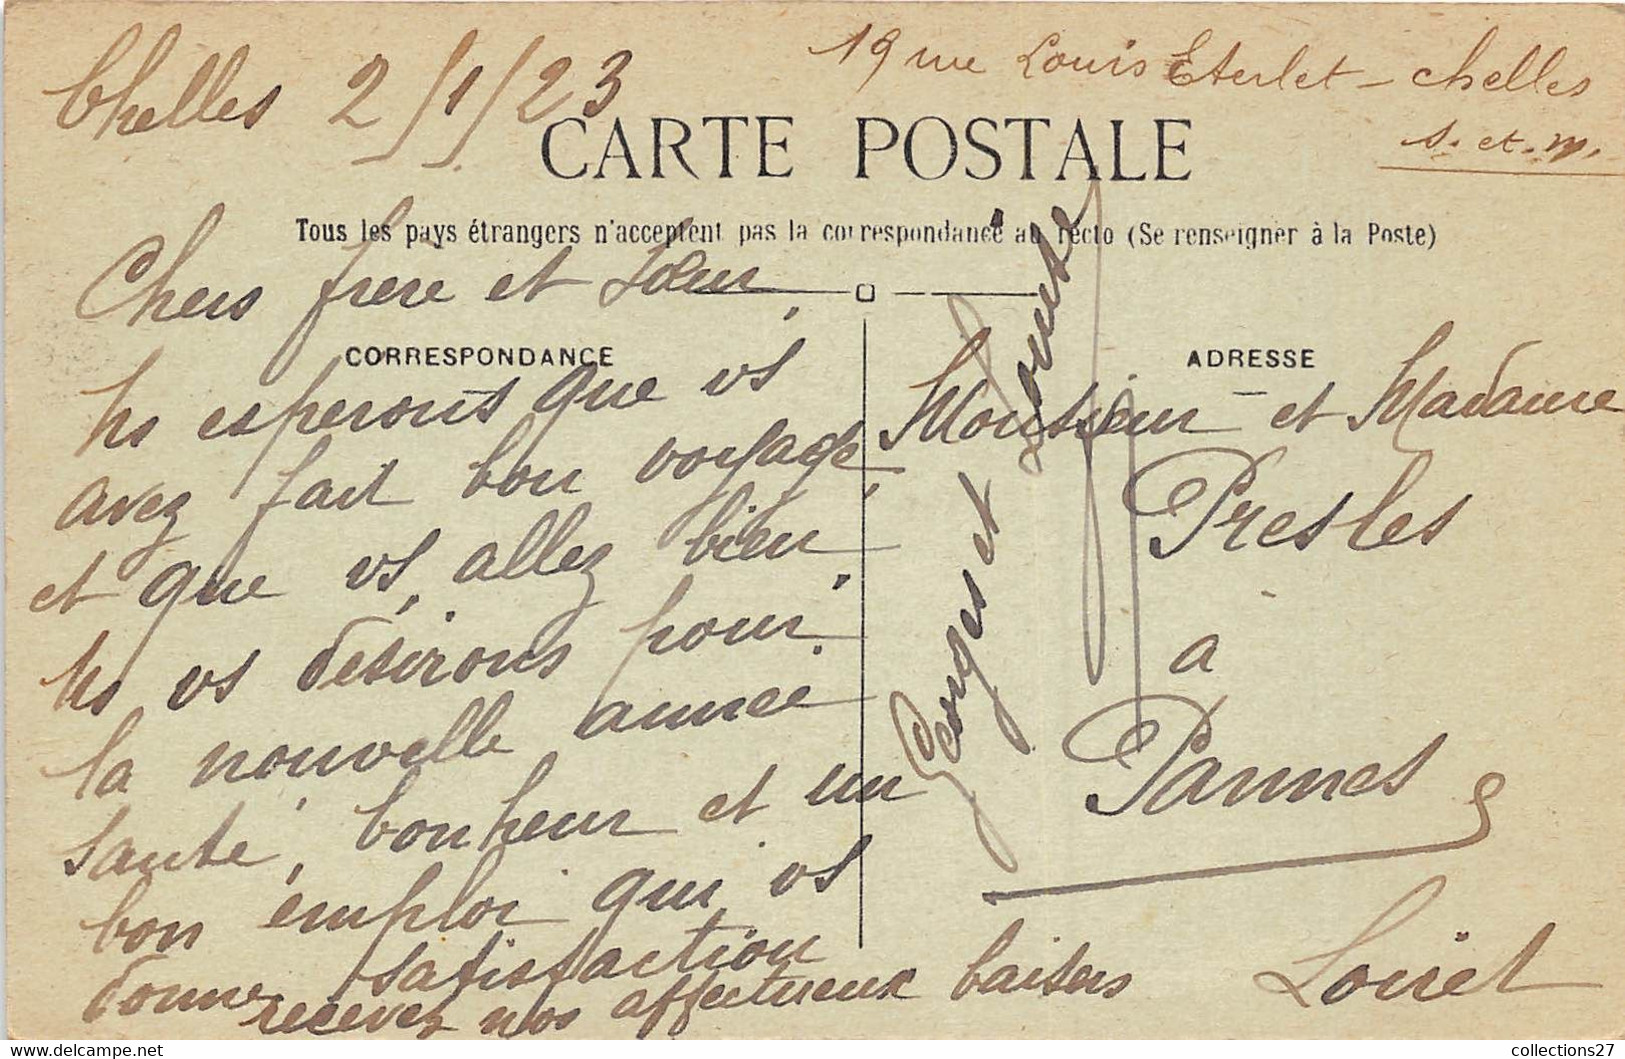 Chelles 2/1/23
19 rue Louis Eterlet - chelles
s. et. m.
CARTE POSTALE
Tous les pays étrangers n'acceptent pas la correspondance au recto (Se renseigner à la Poste)
Chers frere et Sœur,
CORRESPONDANCE
ns esperons que vs
avez fait bon voyage,
et que vs, allez bien,
ns vs désirons pour
la nouvelle année
santé, bonheur et un
bon emploi qui vs
donne satisfaction
recevez nos affectueux baisers
Georges et
ADRESSE
Monsieur et Madame
Presles
a
Pannes
Loiret
collections27